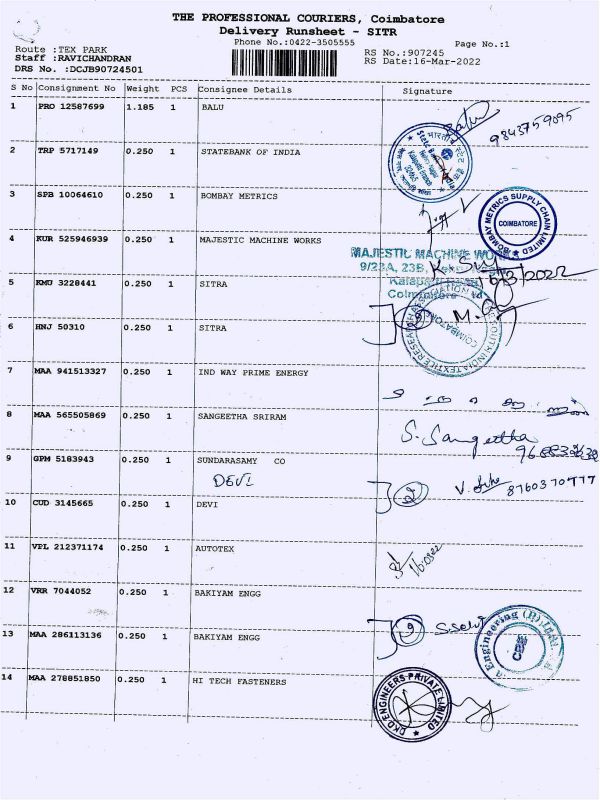 THE PROFESSIONAL COURIERS, Coimbatore
Delivery Runsheet - SITR
Phone No.:0422-3505555
Page No.:1
Route :TEX PARK
RS No.:907245
Staff :RAVICHANDRAN
RS Date:16-Mar-2022
DRS No. :DCJB90724501
S No Consignment No Weight PCS Consignee Details Signature
1 PRO 12587699 1.185 1 BALU
9843759095
2 TRP 5717149 0.250 1 STATEBANK OF INDIA
3 SPB 10064610 0.250 1 BOMBAY METRICS
BOMBAY METRICS SUPPLY CHAIN LIMITED
COIMBATORE
4 KUR 525946939 0.250 1 MAJESTIC MACHINE WORKS
MAJESTIC MACHINE
9/23A, 23B,
5 KMU 3228441 0.250 1 SITRA
6 HNJ 50310 0.250 1 SITRA
COIMBATORE
7 MAA 941513327 0.250 1 IND WAY PRIME ENERGY
8 MAA 565505869 0.250 1 SANGEETHA SRIRAM
S. Sangeetha
9 GPM 5183943 0.250 1 SUNDARASAMY CO
DEVI
8760370977
10 CUD 3145665 0.250 1 DEVI
11 VPL 212371174 0.250 1 AUTOTEX
12 VRR 7044052 0.250 1 BAKIYAM ENGG
13 MAA 286113136 0.250 1 BAKIYAM ENGG
Engineering (P)
CBE
14 MAA 278851850 0.250 1 HI TECH FASTENERS
ENGINEERS PRIVATE LIMITED